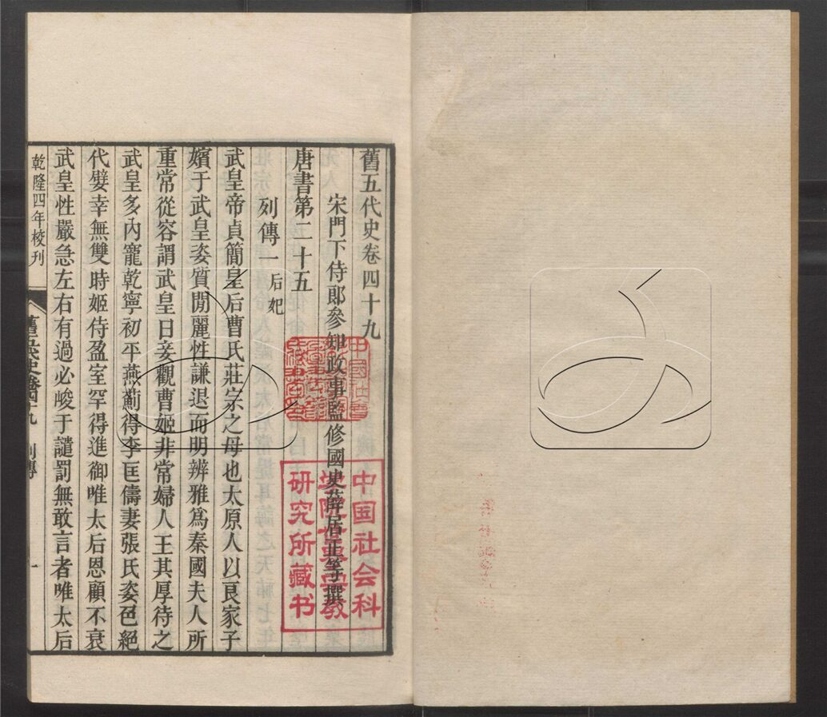 舊五代史卷四十九
宋門下侍郎參知政事監修國史薛居正等撰
唐書第二十五
列傳一后妃
武皇帝貞簡皇后曹氏莊宗之母也太原人以良家子
嬪于武皇姿質閒麗性謙退而明辨雅為秦國夫人所
重常從容謂武皇曰妾觀曹姬非常婦人王其厚待之
武皇多內寵乾寧初平燕薊得李匡儔妻張氏姿色絕
代嬖幸無雙時姬侍盈室罕得進御唯太后恩顧不衰
武皇性嚴急左右有過必峻于譴罰無敢言者唯太后
乾隆四年校刊
舊五代史卷四十九 列傳 一
中国社会科
学院世界宗教
研究所藏书